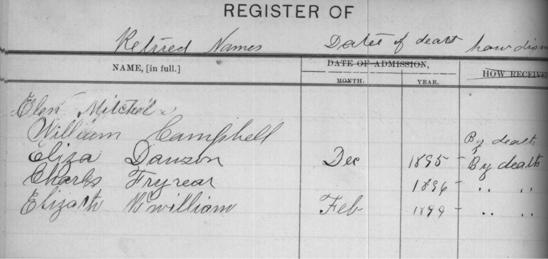 REGISTER OF
Retired Names Dates of death how dism
NAME, [in full.] DATE OF ADMISSION, HOW RECEIVE
MONTH. YEAR.
Elen Mitchel
William Campbell By death
Eliza Dawson Dec 1895 By death
Charles Fryrear 1896 " "
Elizath Mcwilliam Feb 1899 " "